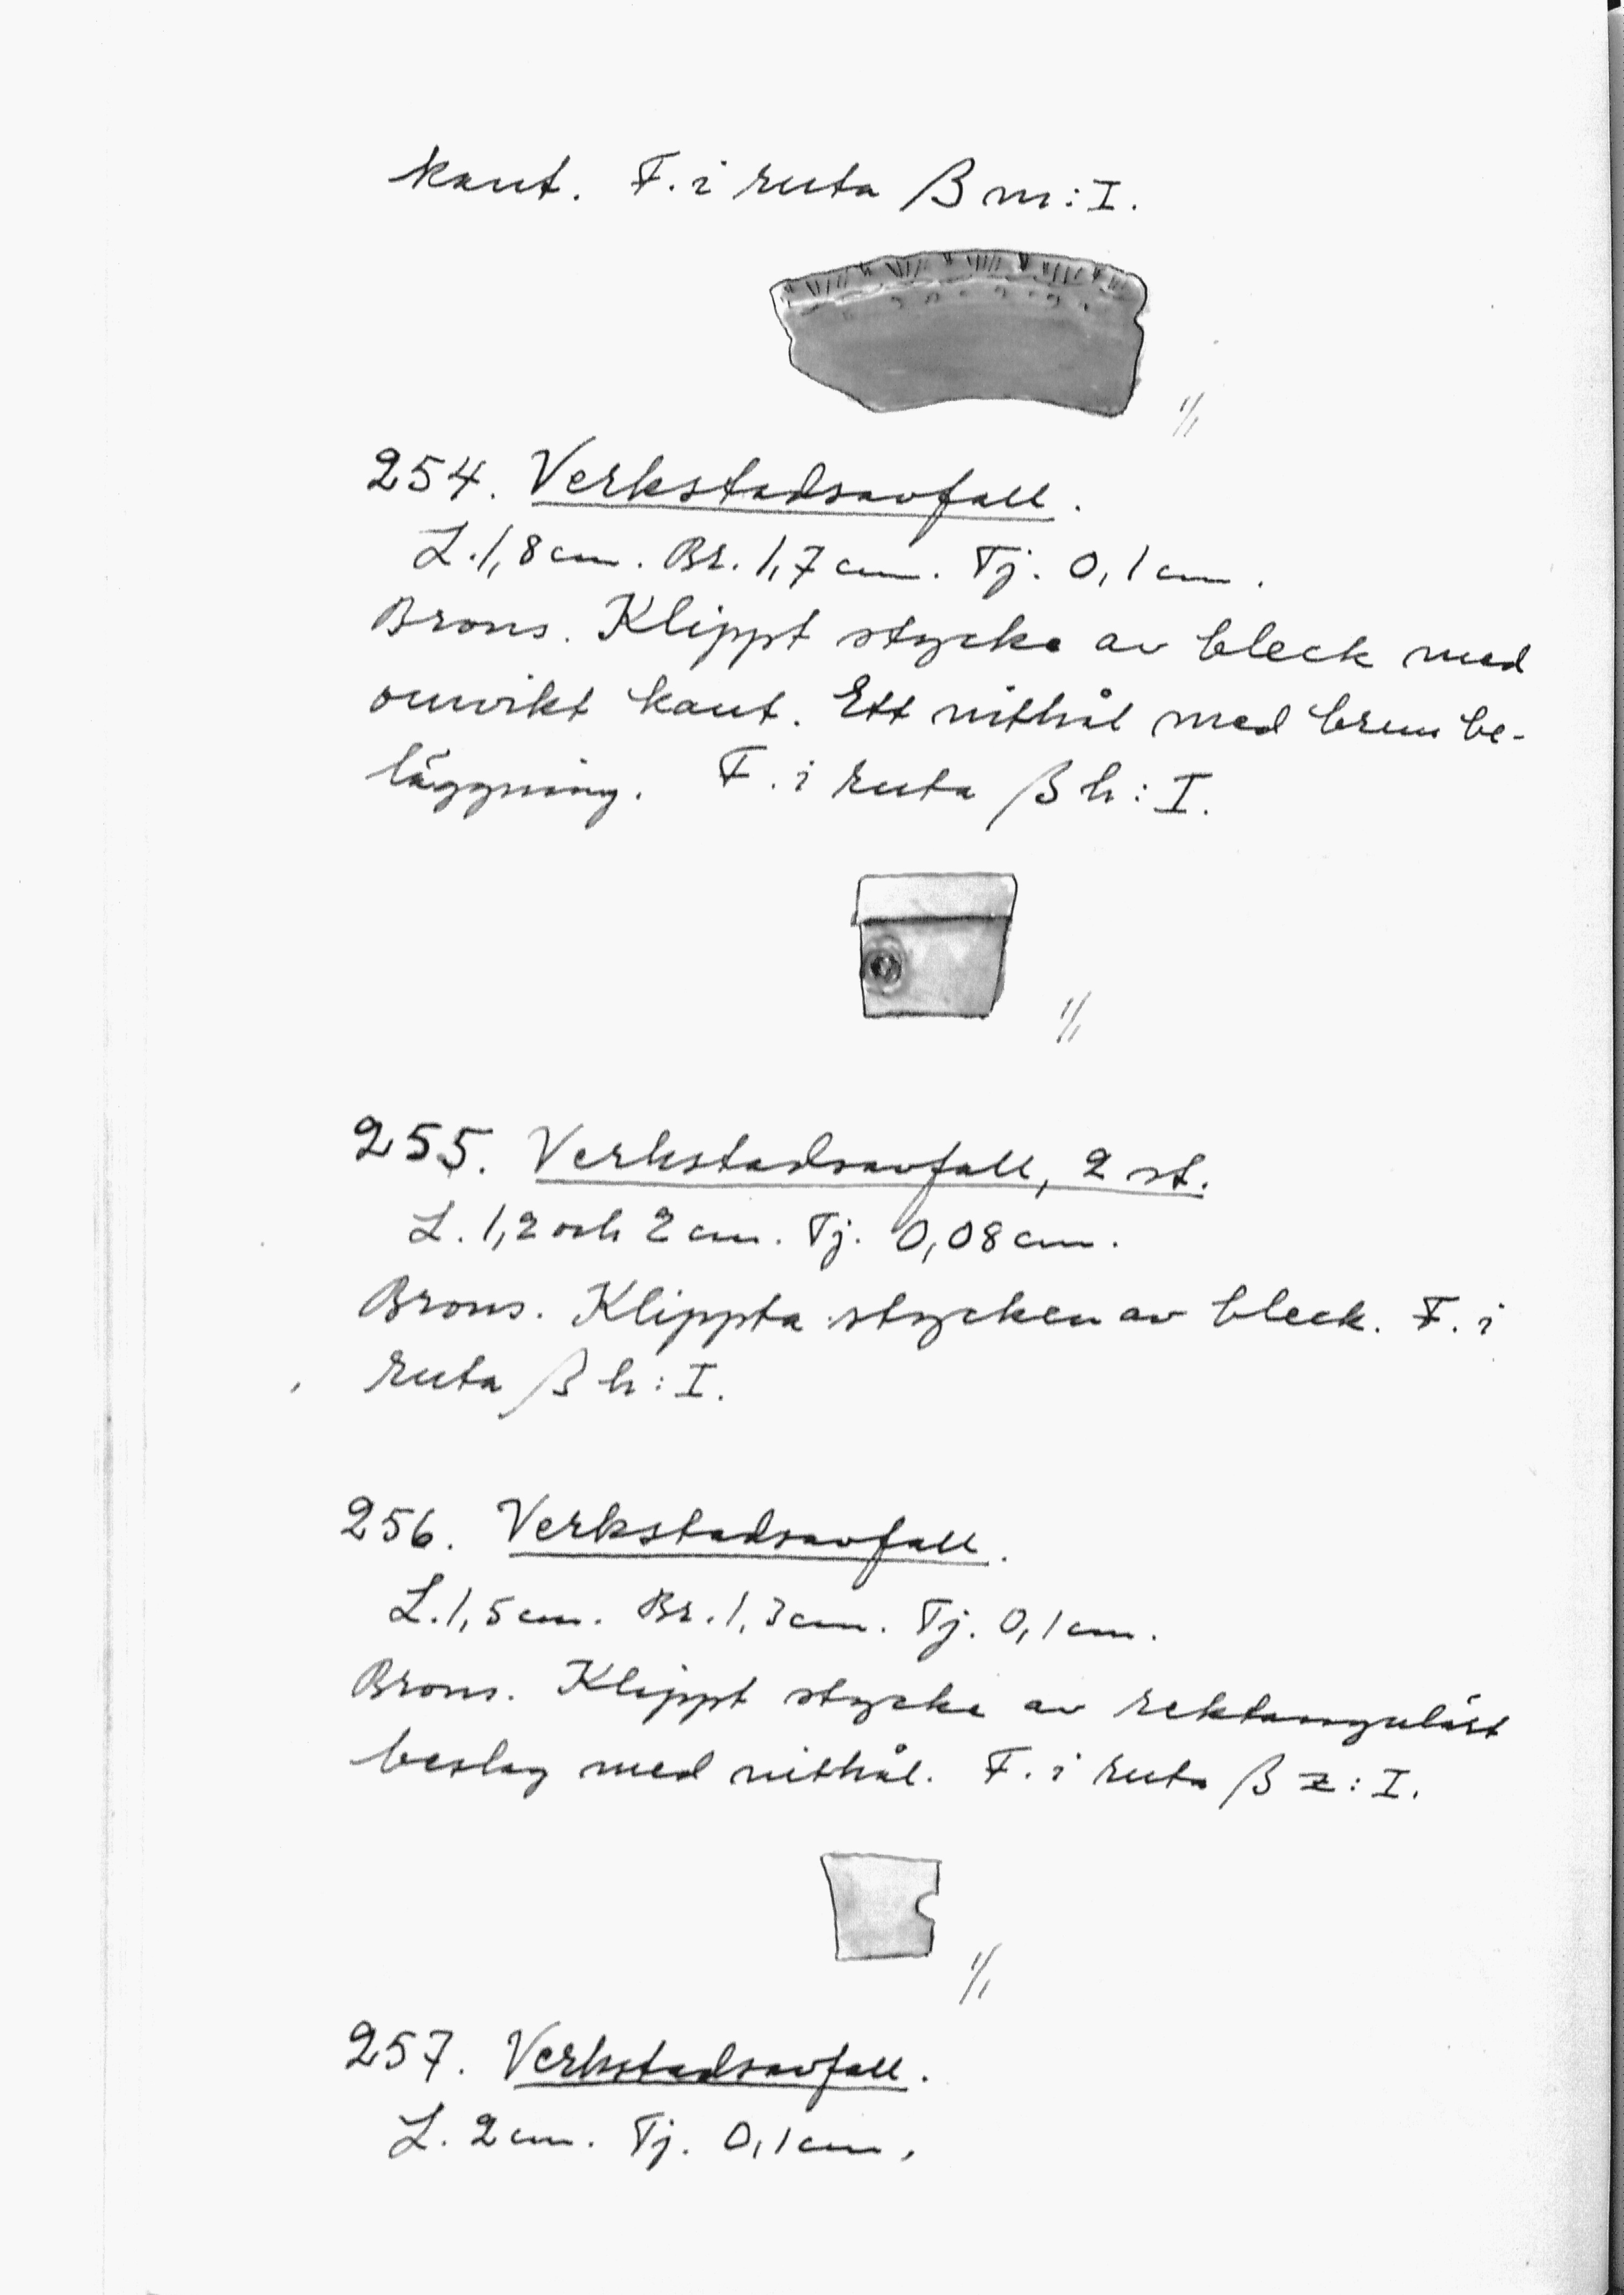 kant. F. i ruta β m:I.
1/1
254. Verkstadsavfall.
L. 1,8 cm. Br. 1,7 cm. Tj. 0,1 cm.
Brons. Klippt stycke av bleck med
omvikt kant. Ett nithål med brun be-
läggning. F. i ruta β h:I.
1/1
255. Verkstadsavfall, 2 st.
L. 1,2 och 2 cm. Tj. 0,08 cm.
Brons. Klippta stycken av bleck. F. i
ruta β h:I.
256. Verkstadsavfall.
L. 1,5 cm. Br. 1,3 cm. Tj. 0,1 cm.
Brons. Klippt stycke av rektangulärt
beslag med nithål. F. i ruta β z:I.
1/1
257. Verkstadsavfall.
L. 2 cm. Tj. 0,1 cm.